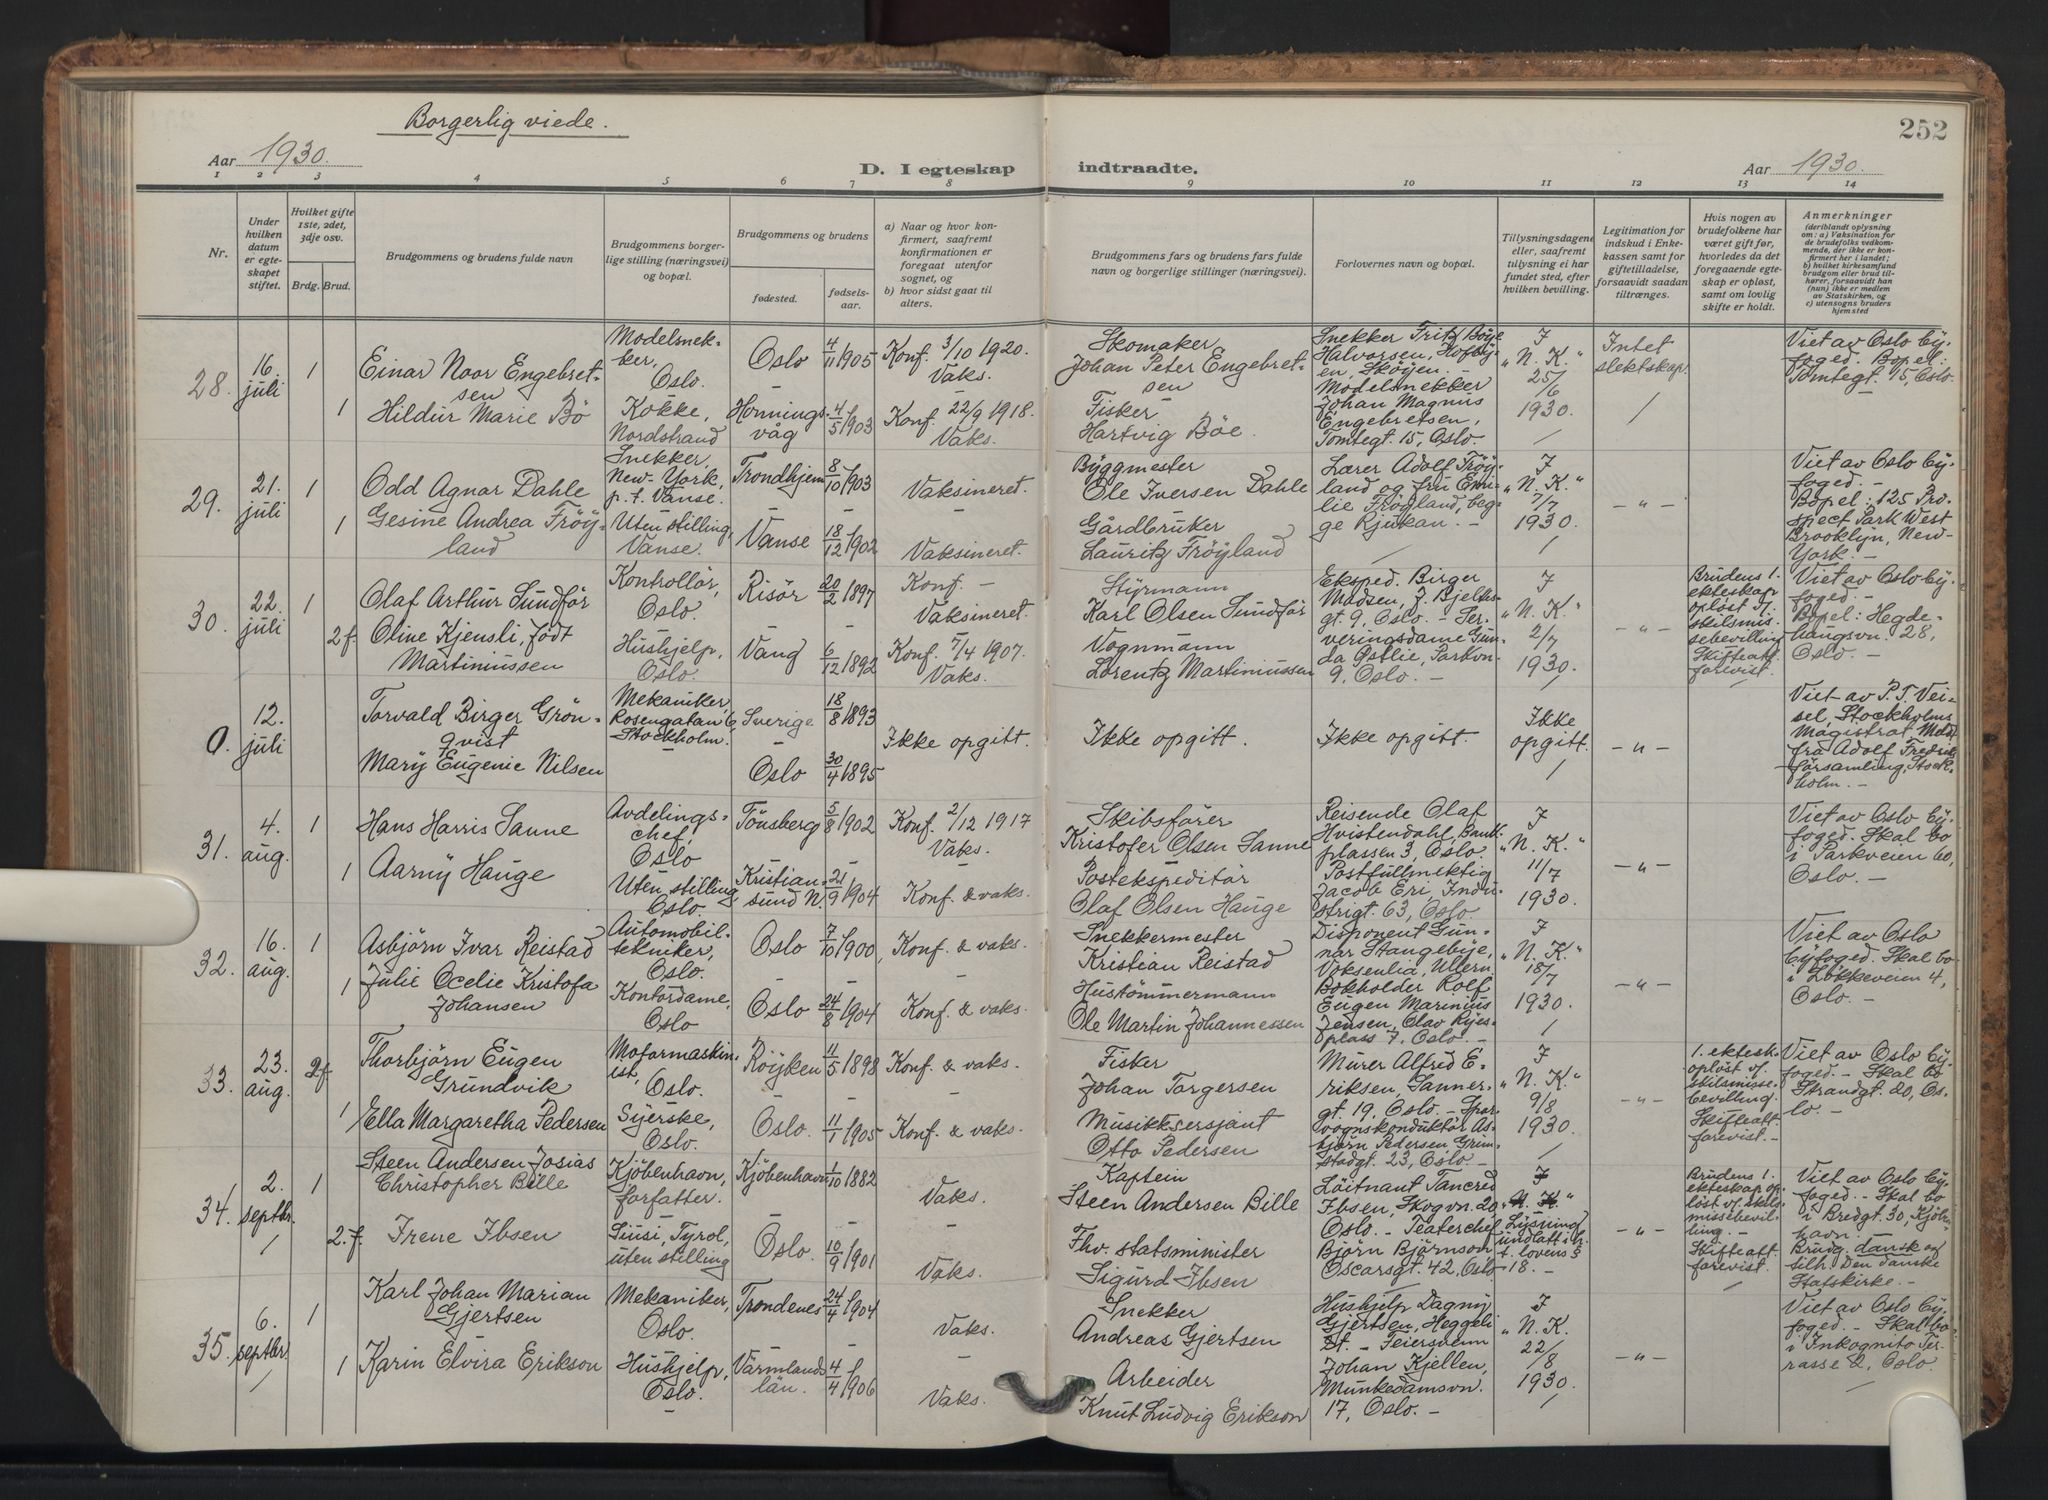 Borgerlig viede.
252
Aar 1930.
D. I egteskap indtraadte.
Aar 1930.
1 2 3 4 5 6 7 8 9 10 11 12 13 14
Nr.
Under hvilken datum er egteskapet stiftet.
Hvilket gifte 1ste, 2det, 3dje osv.
Brdg. Brud.
Brudgommens og brudens fulde navn
Brudgommens borgerlige stilling (næringsvei) og bopæl.
Brudgommens og brudens
fødested.
fødselsaar.
a) Naar og hvor konfirmert, saafremt konfirmationen er foregaat utenfor sognet, og
b) hvor sidst gaat til alters.
Brudgommens fars og brudens fars fulde navn og borgerlige stillinger (næringsvei).
Forlovernes navn og bopæl.
Tillysningsdagene eller, saafremt tillysning ei har fundet sted, efter hvilken bevilling.
Legitimation for indskud i Enkekassen samt for giftetilladelse, forsaavidt saadan tiltrænges.
Hvis nogen av brudefolkene har været gift før, hvorledes da det foregaaende egteskap er opløst, samt om lovlig skifte er holdt.
Anmerkninger (deriblandt oplysning om: a) Vaksination for de brudefolks vedkommende, der ikke er konfirmert her i landet; b) hvilket kirkesamfund brudgom eller brud tilhører, forsaavidt han (hun) ikke er medlem av Statskirken, og c) utensogns bruders hjemsted
28. 16. juli 1
Einar Noor Engebretsen
Modelsnekker, Oslo.
Oslo 4/11 1905
Konf. 3/10 1920. Vaks.
Skomaker Johan Peter Engebretsen
Snekker Fritz Böye Halvorsen, Hofbyen, Skøyen. –
Modelsnekker Johan Magnus Engebretsen, Tomtegt. 15, Oslo.
I "N. K." 25/6 1930.
Intet slektskap.
Viet av Oslo byfoged. Bopel: Tomtegt. 15, Oslo.
1 Hildur Marie Bö
Kokke, Nordstrand
Honningsvåg 4/5 1903
Konf. 22/9 1918. Vaks.
Fisker Hartvig Böe.
29. 21. juli 1
Odd Agnar Dahle
Snekker, New-York, p. t. Vanse.
Trondhjem 8/10 1903
Vaksineret.
Byggmester Ole Iversen Dahle
Lærer Adolf Fröyland og fru Emilie Fröyland, begge Rjukan. –
I "N. K." 7/7 1930.
– " –
Viet av Oslo byfoged. – Bopel: 125 Prospect Park West Brooklyn, New-York. –
1 Gesine Andrea Fröyland
Uten stilling, Vanse.
Vanse 18/12 1902
Vaksineret.
Gårdbruker Lauritz Fröyland
30. 22. juli 1
Olaf Arthur Sundför
Kontrollör, Oslo.
Risör 20/2 1897
Konf. – Vaksineret.
Styrmann Karl Olsen Sundför
Eksped. Birger Madsen, J. Bjelkesgt. 9, Oslo. – Serveringsdame Gunda Østlie, Parkvn. 9, Oslo. –
I "N. K." 2/7 1930.
– " –
Brudens 1. ekteskap oplöst v. skilsmissebevilling Skifteatt. forevist.
Viet av Oslo byfoged. – Bopel: Hegdehaugsvn. 28, Oslo. –
2 f. Oline Kjensli, födt Martiniussen
Hushjelp, Oslo.
Vang 6/12 1892
Konf. 7/4 1907. Vaks.
Vognmann Lorentz Martiniussen
0. 12. juli
Torvald Birger Grönqvist
Mekaniker, Rosengatan 6, Stockholm.
Sverige 18/8 1893
Ikke opgitt.
Ikke opgitt.
Ikke opgitt.
Ikke opgitt.
– " –
Viet av P. T Veisel, Stockholms Magistrat. Meld. fra Adolf Fredriks församling, Stockholm. –
Mary Eugenie Nilsen
Oslo 30/4 1895
31. 4. aug. 1
Hans Harris Sanne
Avdelingschef, Oslo
Tönsberg 5/8 1902
Konf. 2/12 1917 Vaks.
Skibsförer Kristofer Olsen Sanne
Reisende Olaf Hvistendahl, Bankplassen 3, Oslo.
Postfullmektig Jacob Eri, Industrigt. 63, Oslo.
I "N. K." 11/7 1930.
– " –
Viet av Oslo byfoged. Skal bo i Parkveien 60, Oslo. –
1 Aarny Hauge
Uten stilling, Oslo.
Kristiansund N. 21/9 1904
Konf. & vaks.
Postekspeditör Olaf Olsen Hauge
32. 16. aug. 1
Asbjörn Ivar Reistad
Automobiltekniker, Oslo.
Oslo 7/10 1900,
Konf. & vaks.
Snekkermester Kristian Reistad
Disponent Gunnar Stangebye, Voksenlia, Ullern
Bokholder Rolf Eugen Marinius Jensen, Olav Ryesplass 7, Oslo. –
I "N. K." 18/7 1930.
– " –
Viet av Oslo byfoged. Skal bo i Lökkeveien 4, Oslo. –
1 Julie Ocelie Kristofa Johansen
Kontordame, Oslo
Oslo 24/8 1904
Konf. & vaks.
Hustömmermann Ole Martin Johannessen
33. 23. aug. 2 f
Thorbjörn Eugen Grundvik
Motormaskinist, Oslo.
Röyken 11/5 1898
Konf. & vaks.
Fisker Johan Torgersen
Murer Alfred Eriksen, Sannergt. 19, Oslo. – Sporvognskonduktör Asbjörn Pedersen, Grimstadgt. 23, Oslo. –
I "N. K." 9/8 1930.
– " –
1. ektesk. oplöst v. skilsmissebevilling. Skifteatt. forevist. –
Viet av Oslo byfoged. – Skal bo Strandgt. 20, Oslo. –
1 Ella Margaretha Pedersen
Syerske, Oslo.
Oslo. 11/1 1905
Konf. & vaks.
Musikksersjant Otto Pedersen
34. 2. septbr. 1
Steen Andersen Josias Christopher Bille
Kjöbenhavn, forfatter.
Kjöbenhavn 1/10 1882
Vaks.
Kaptein Steen Andersen Bille
Löitnant Tancred Ibsen, Skogvn. 20, Oslo. – Teaterchef Björn Björnson Oscarsgt. 42, Oslo
I "N. K." Lysning undlatt i h. t. lovens § 18. –
– " –
Brudens 1. ekteskap oplöst v. skilsmissebevilling. – Skifteatt. forevist.
Viet av Oslo byfoged. – Skal bo i Bredgt. 30, Kjöbenhavn. Brudg. dansk og tilh. Den danske Statskirke. –
2. f. Irene Ibsen
Siusi, Tyrol, uten stilling
Oslo. 10/9 1901
Vaks.
Fhv. statsminister Sigurd Ibsen
35. 6. septbr. 1
Karl Johan Marian Gjertsen
Mekaniker, Oslo.
Trondenes 24/4 1904
Vaks.
Snekker Andreas Gjertsen
Hushjelp Dagny Gjertsen, Heggeli st. – Feiersvenn Johan Kjellen, Munkedamsvn. 17, Oslo. –
I "N. K. 22/8 1930.
– " –
Viet av Oslo byfoged. – Skal bo i Inkognito Terrasse 2, Oslo.
1 Karin Elvira Erikson
Hushjelp, Oslo.
Värmlands län. 4/4 1906
Vaks.
Arbeider Knut Ludvig Erikson